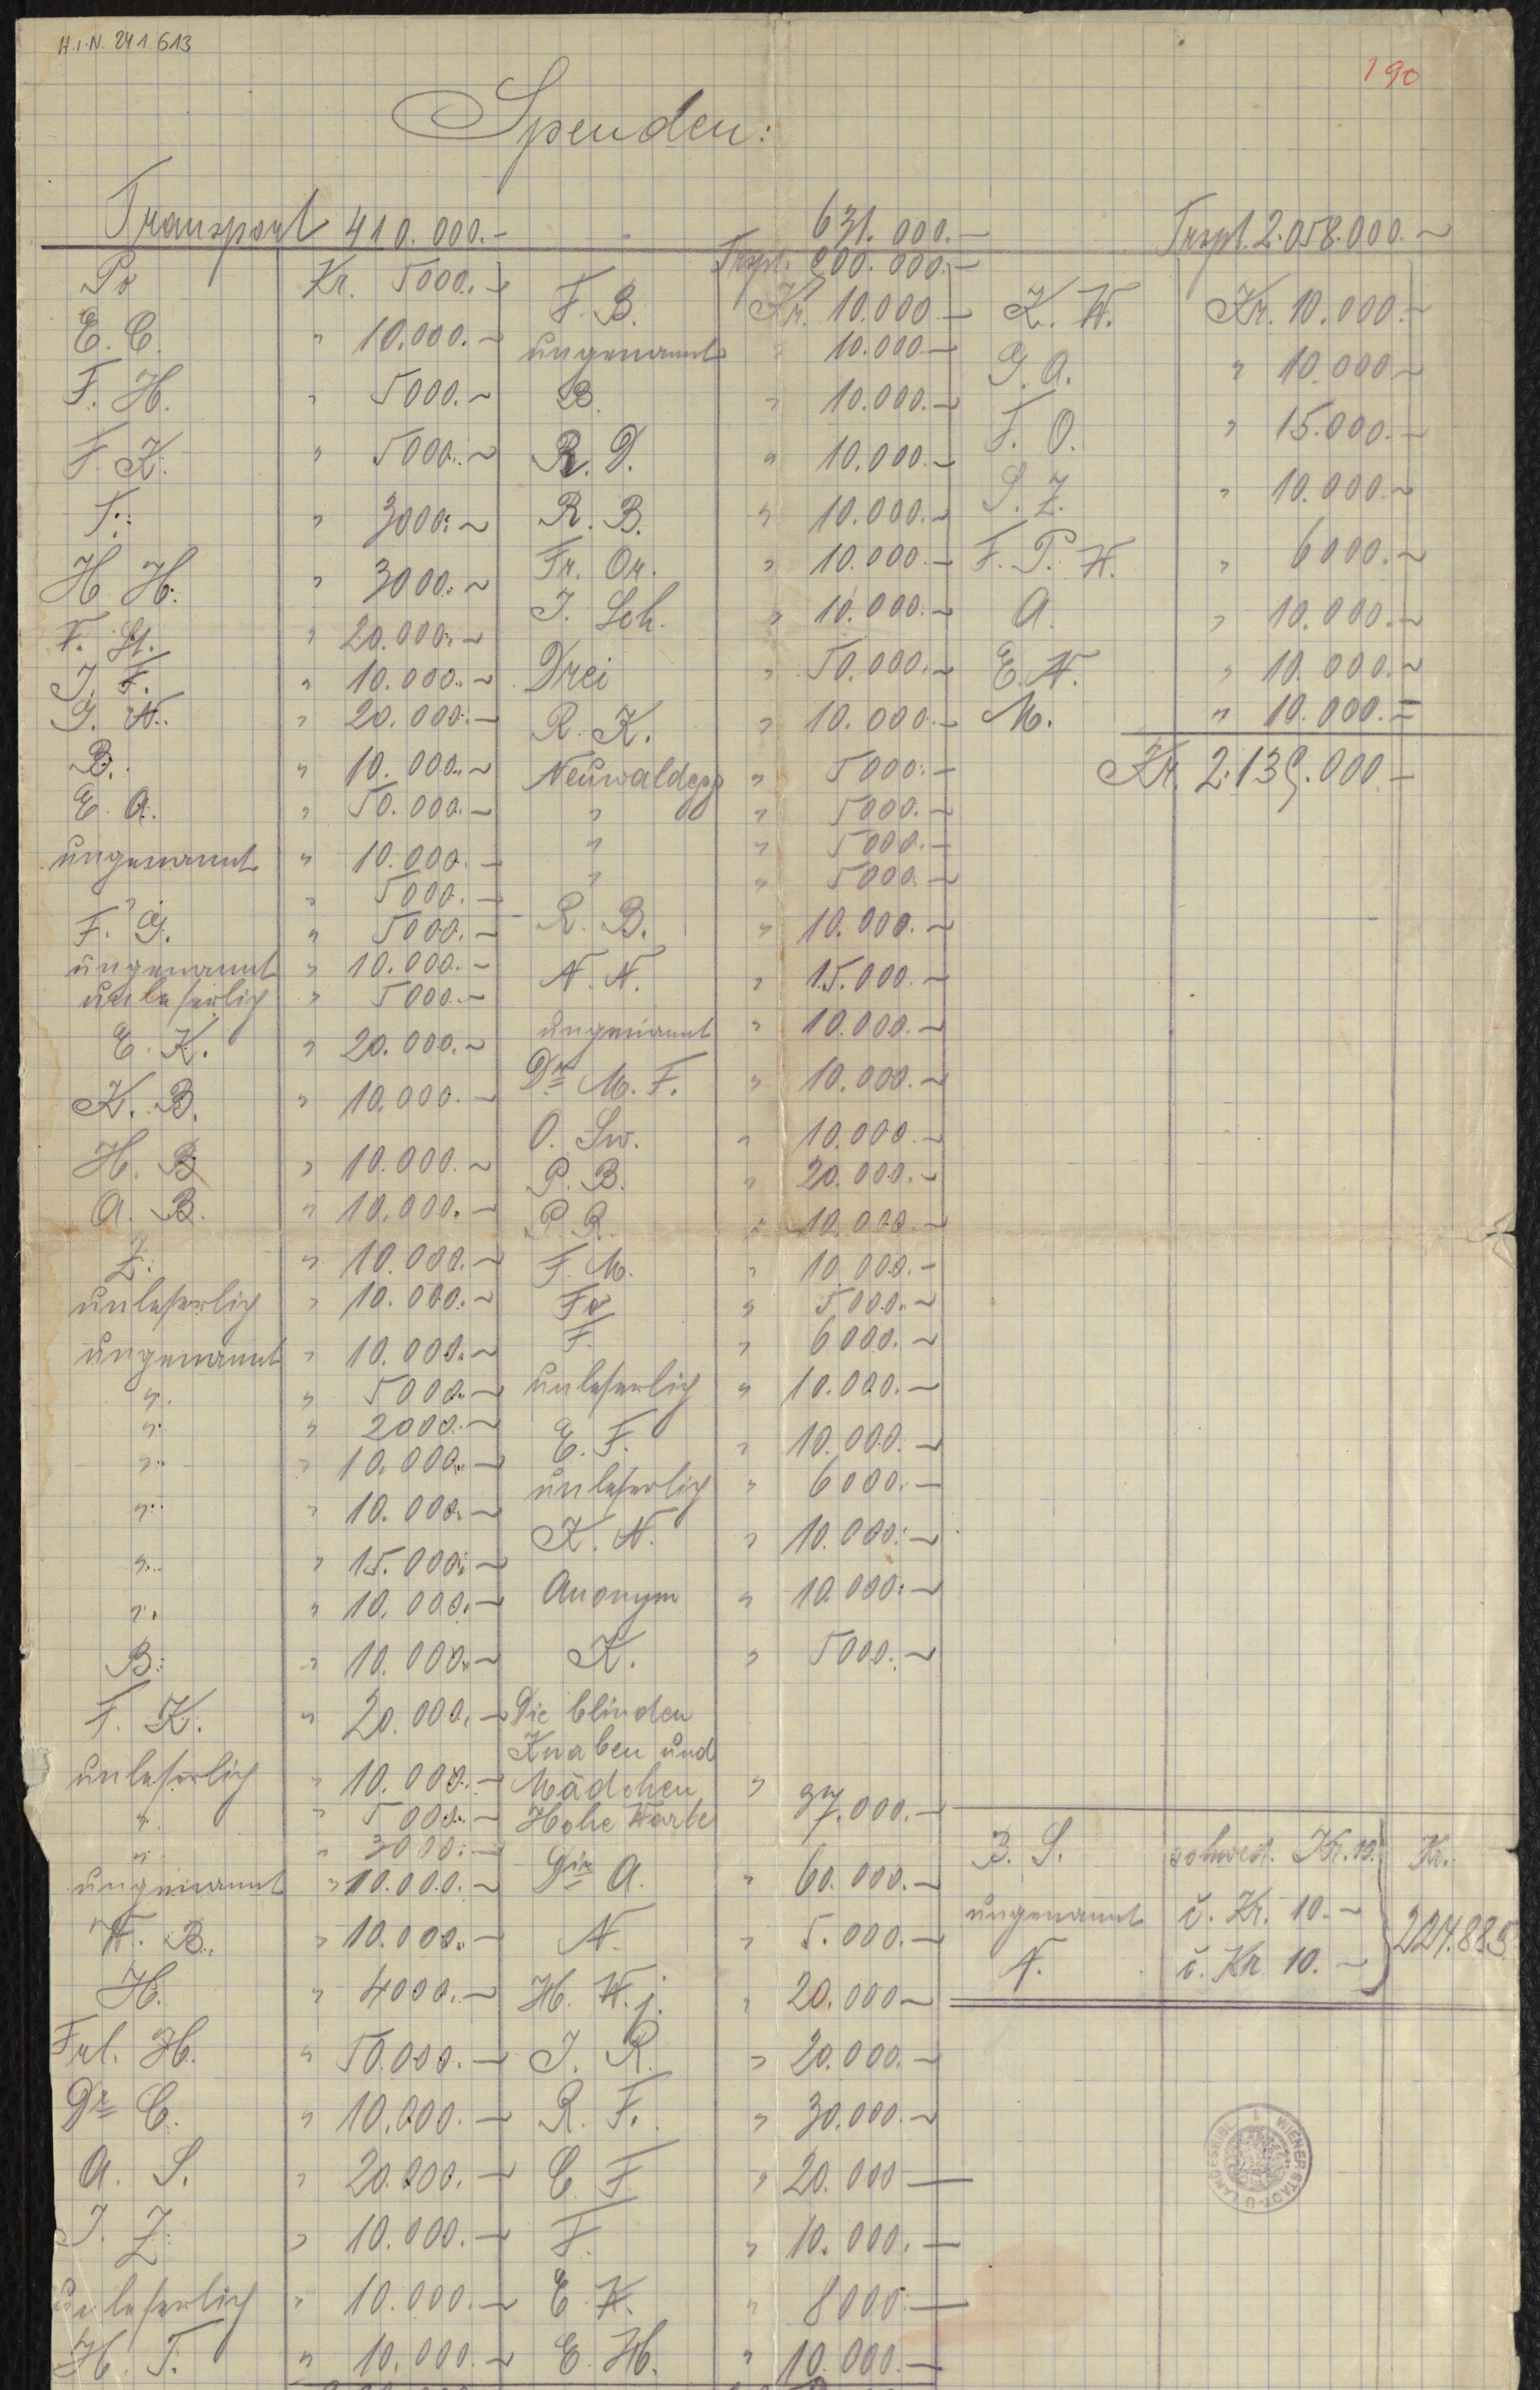 H.I.N. 241613
190
Spenden:
Transport 410.000.-
Po Kr. 5000.-
E. C. " 10.000.-
F. H. " 5000.-
F. K. " 5000.-
T. " 3000.-
H. H. " 3000.-
F. St. " 20.000.-
J. F. " 10.000.-
G. N. " 20.000.-
B. " 10.000.-
E. A. " 50.000.-
ungenannt " 10.000.-
" " 5000.-
F. G. " 5000.-
ungenannt " 10.000.-
unleserlich " 5000.-
E. K. " 20.000.-
K. B. " 10.000.-
H. B. " 10.000.-
A. B. " 10.000.-
Z. " 10.000.-
unleserlich " 10.000.-
ungenannt " 10.000.-
" " 5000.-
" " 2000.-
" " 10.000.-
" " 10.000.-
" " 15.000.-
" " 10.000.-
B. " 10.000.-
F. K. " 20.000.-
unleserlich " 10.000.-
" " 5000.-
" " 3000.-
ungenannt " 10.000.-
W. B. " 10.000.-
H. " 4000.-
Frl. H. " 50.000.-
Dr C. " 10.000.-
A. S. " 20.000.-
J. Z. " 10.000.-
unleserlich " 10.000.-
H. T. " 10.000.-
631.000.-
Trspt. 200.000.-
F. B. Kr. 10.000.-
ungenannt " 10.000.-
B. " 10.000.-
R. D. " 10.000.-
R. B. " 10.000.-
Fr. Or. " 10.000.-
J. Sch. " 10.000.-
Drei " 50.000.-
R. K. " 10.000.-
Neuwaldegg " 5000.-
" " 5000.-
" " 5000.-
" " 5000.-
R. B. " 10.000.-
N. N. " 15.000.-
ungenannt " 10.000.-
Dr M. F. " 10.000.-
O. Sw. " 10.000.-
P. B. " 20.000.-
P. R. " 10.000.-
F. M. " 10.000.-
Fo " 5000.-
F. " 6000.-
unleserlich " 10.000.-
E. F. " 10.000.-
unleserlich " 6000.-
K. N. " 10.000.-
Anonym " 10.000.-
K. " 5000.-
Die blinden
Knaben und
Mädchen "
Hohe Warte 37.000.-
Dir A. " 60.000.-
N. " 5.000.-
H. W. j. " 20.000-
J. R. " 20.000.-
R. F. " 30.000.-
C. F. " 20.000-
F. " 10.000.-
E. W. " 8000.-
E. H. " 10.000.-
Trspt. 2.058.000.-
K. W. Kr. 10.000.-
G. A. " 10.000-
F. O. " 15.000.-
S. Z. " 10.000.-
F. P. W. " 6000.-
A. " 10.000.-
E. W. " 10.000.-
M. " 10.000.=
Kr. 2.139.000.-
B. S. schwed. Kr. 10. Kr.
ungenannt č. Kr. 10.- 224.885
N. č. Kr. 10.-
WIENER STADT-U. LANDESBIBL.